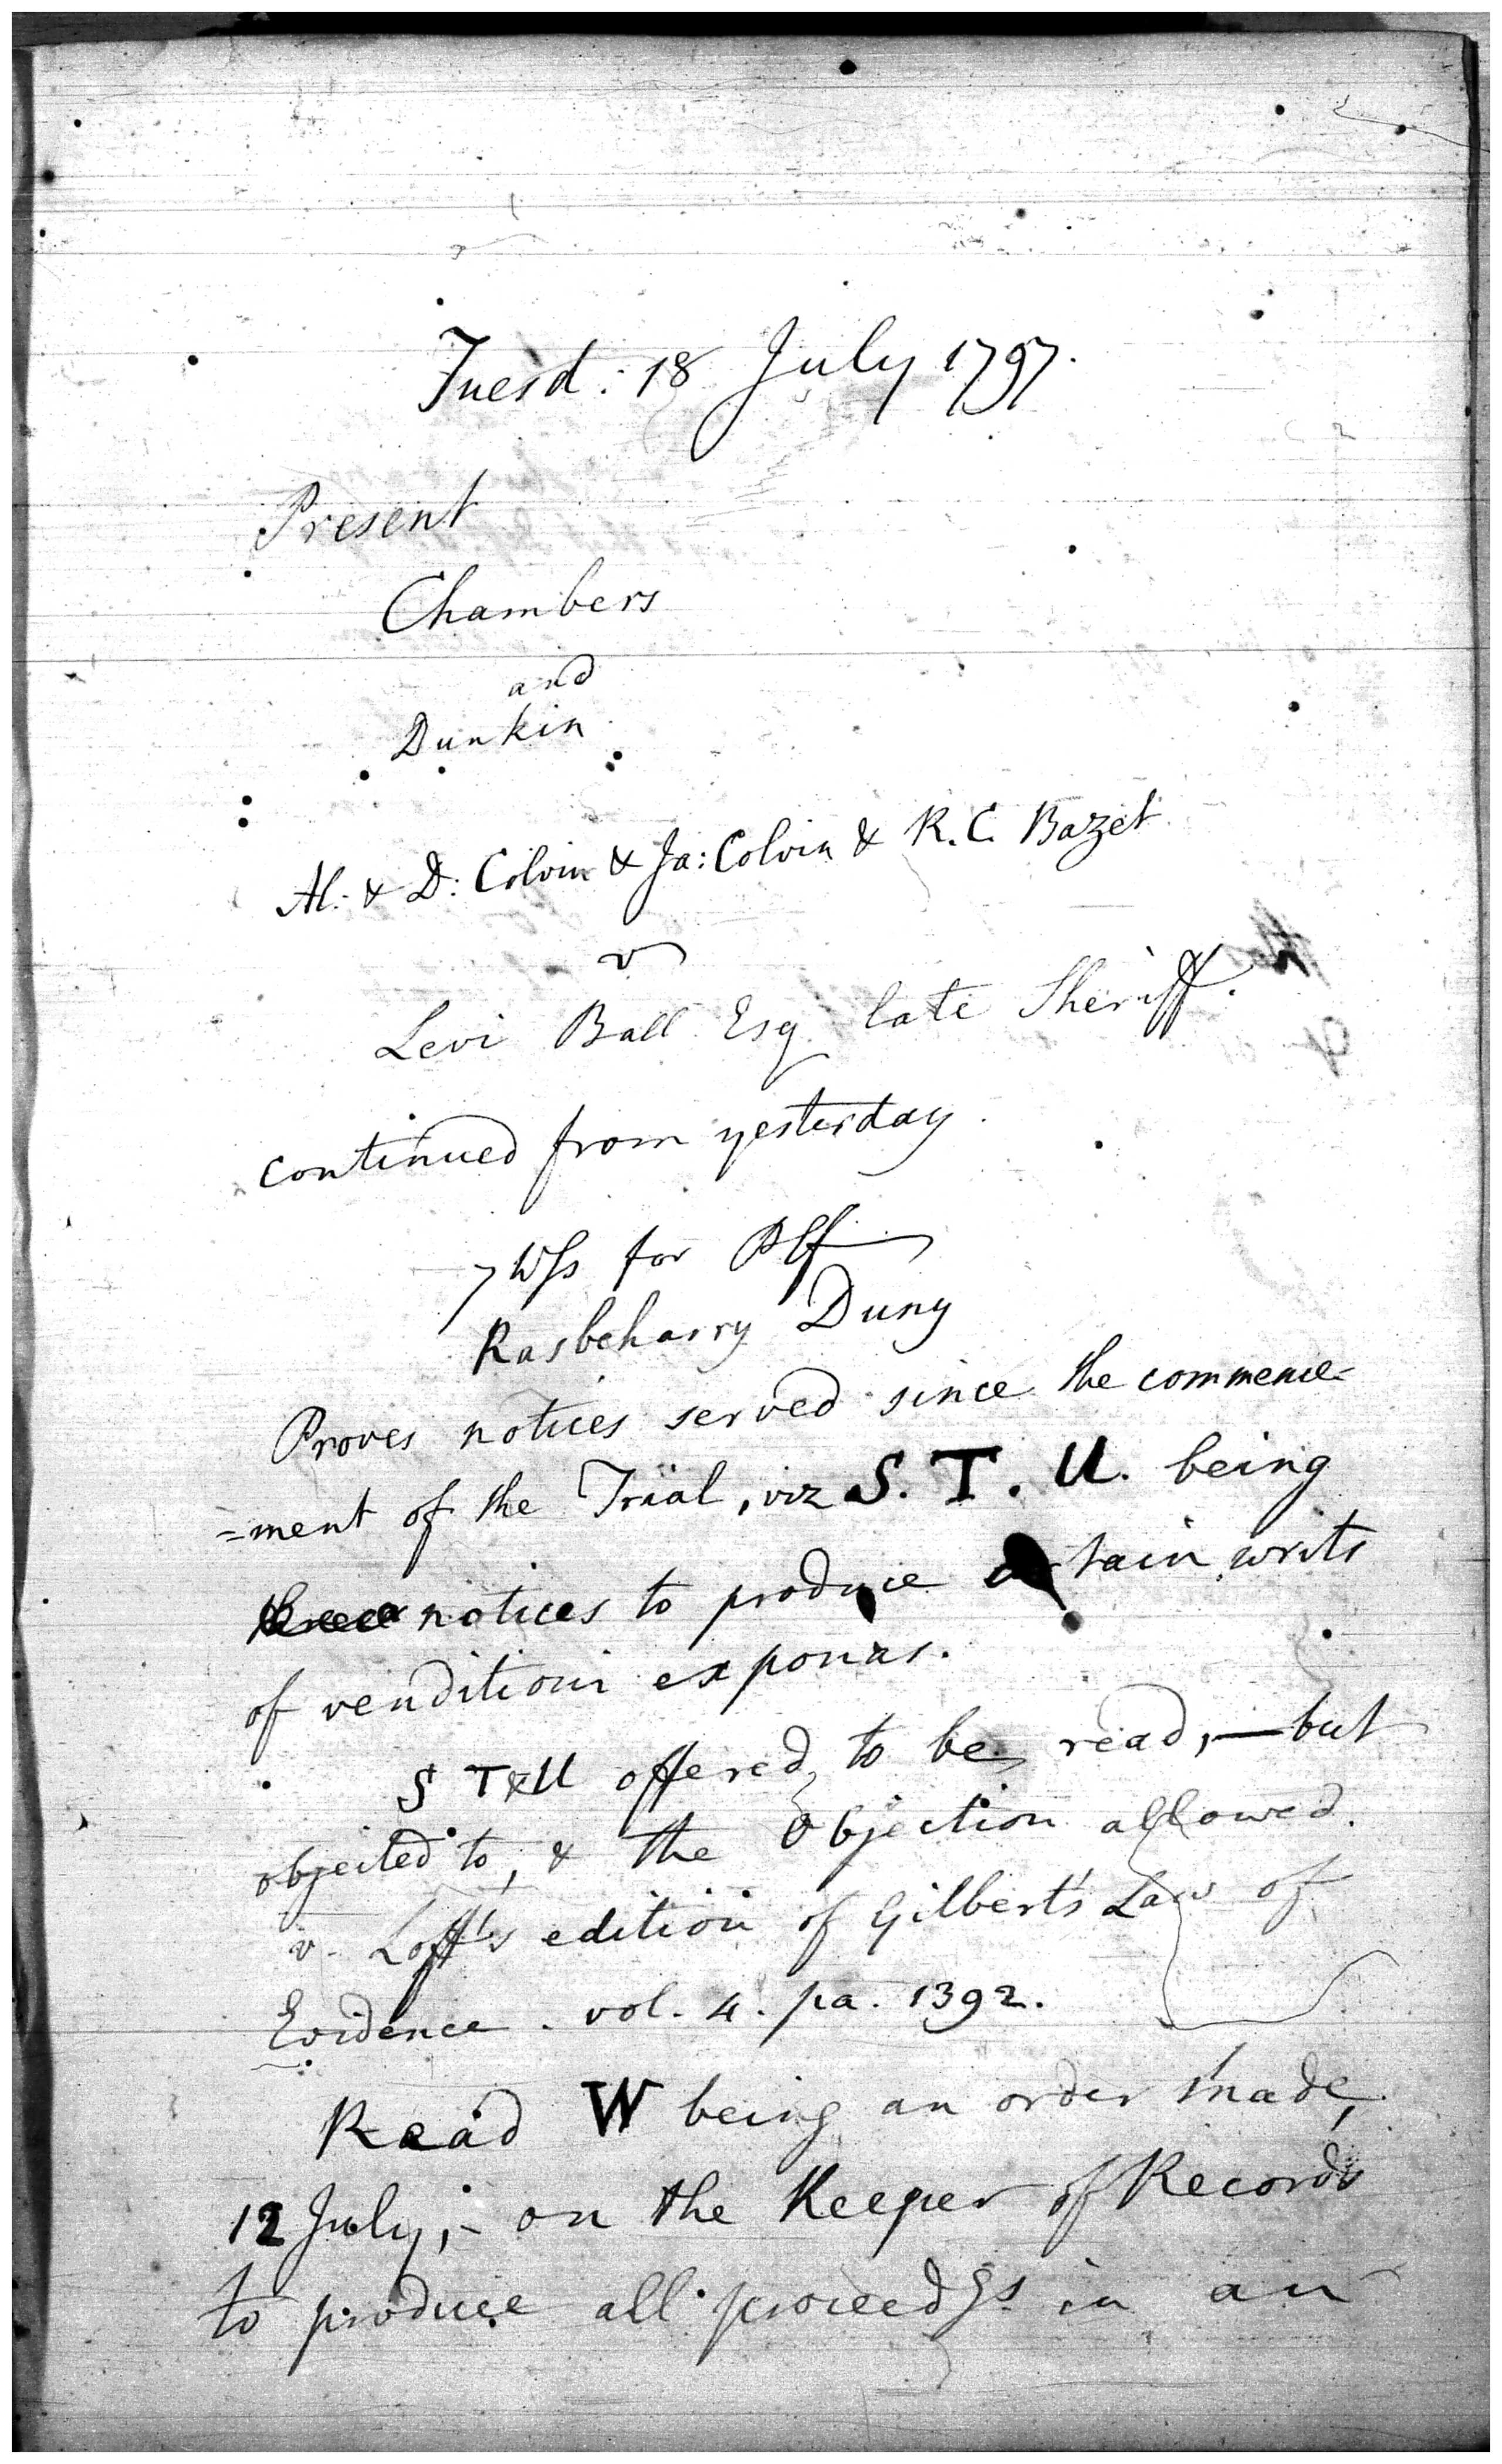 Tuesd: 18 July 1797.
Present
Chambers
and
Dunkin
Al: & D: Colvin & Ja: Colvin & R. C. Bazet
v
Levi Ball Esq late Sheriff.
continued from yesterday.
7 Wss for Plf
Rasbeharry Duny
Proves notices served since the commence-
=ment of the Trial, viz S. T. U. being
notices to produce certain writs
of venditioni exponas.
S T & U offered to be read, — but
objected to, & the Objection allowed.
v. Lofft's edition of Gilbert's Law of
Evidence. vol. 4. pa. 1392.
Read W being an order made,
12 July, - on the Keeper of Records
to produce all proceedgs in an